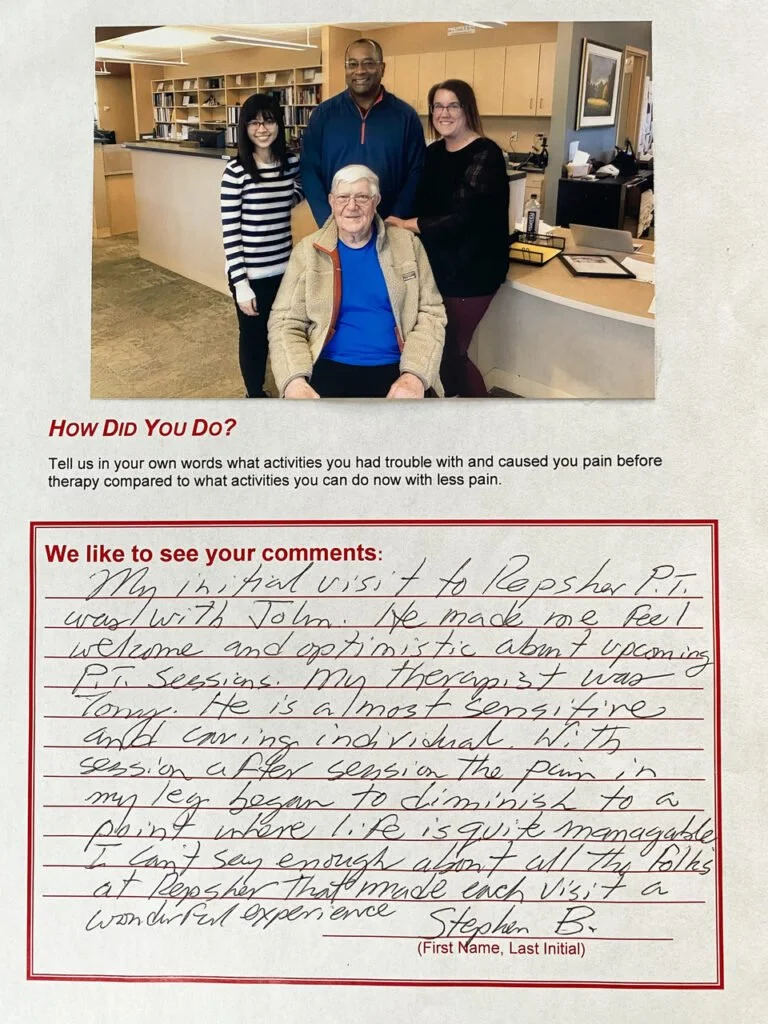 HOW DID YOU DO?
Tell us in your own words what activities you had trouble with and caused you pain before
therapy compared to what activities you can do now with less pain.
We like to see your comments:
My initial visit to Repsher P.T.
was with John. He made me feel
welcome and optimistic about upcoming
P.T. sessions. My therapist was
Tony. He is a most sensitive
and caring individual. With
session after session the pain in
my leg began to diminish to a
point where life is quite managable
I can't say enough about all the folks
at Repsher that made each visit a
wonderful experience Stephen B.
(First Name, Last Initial)